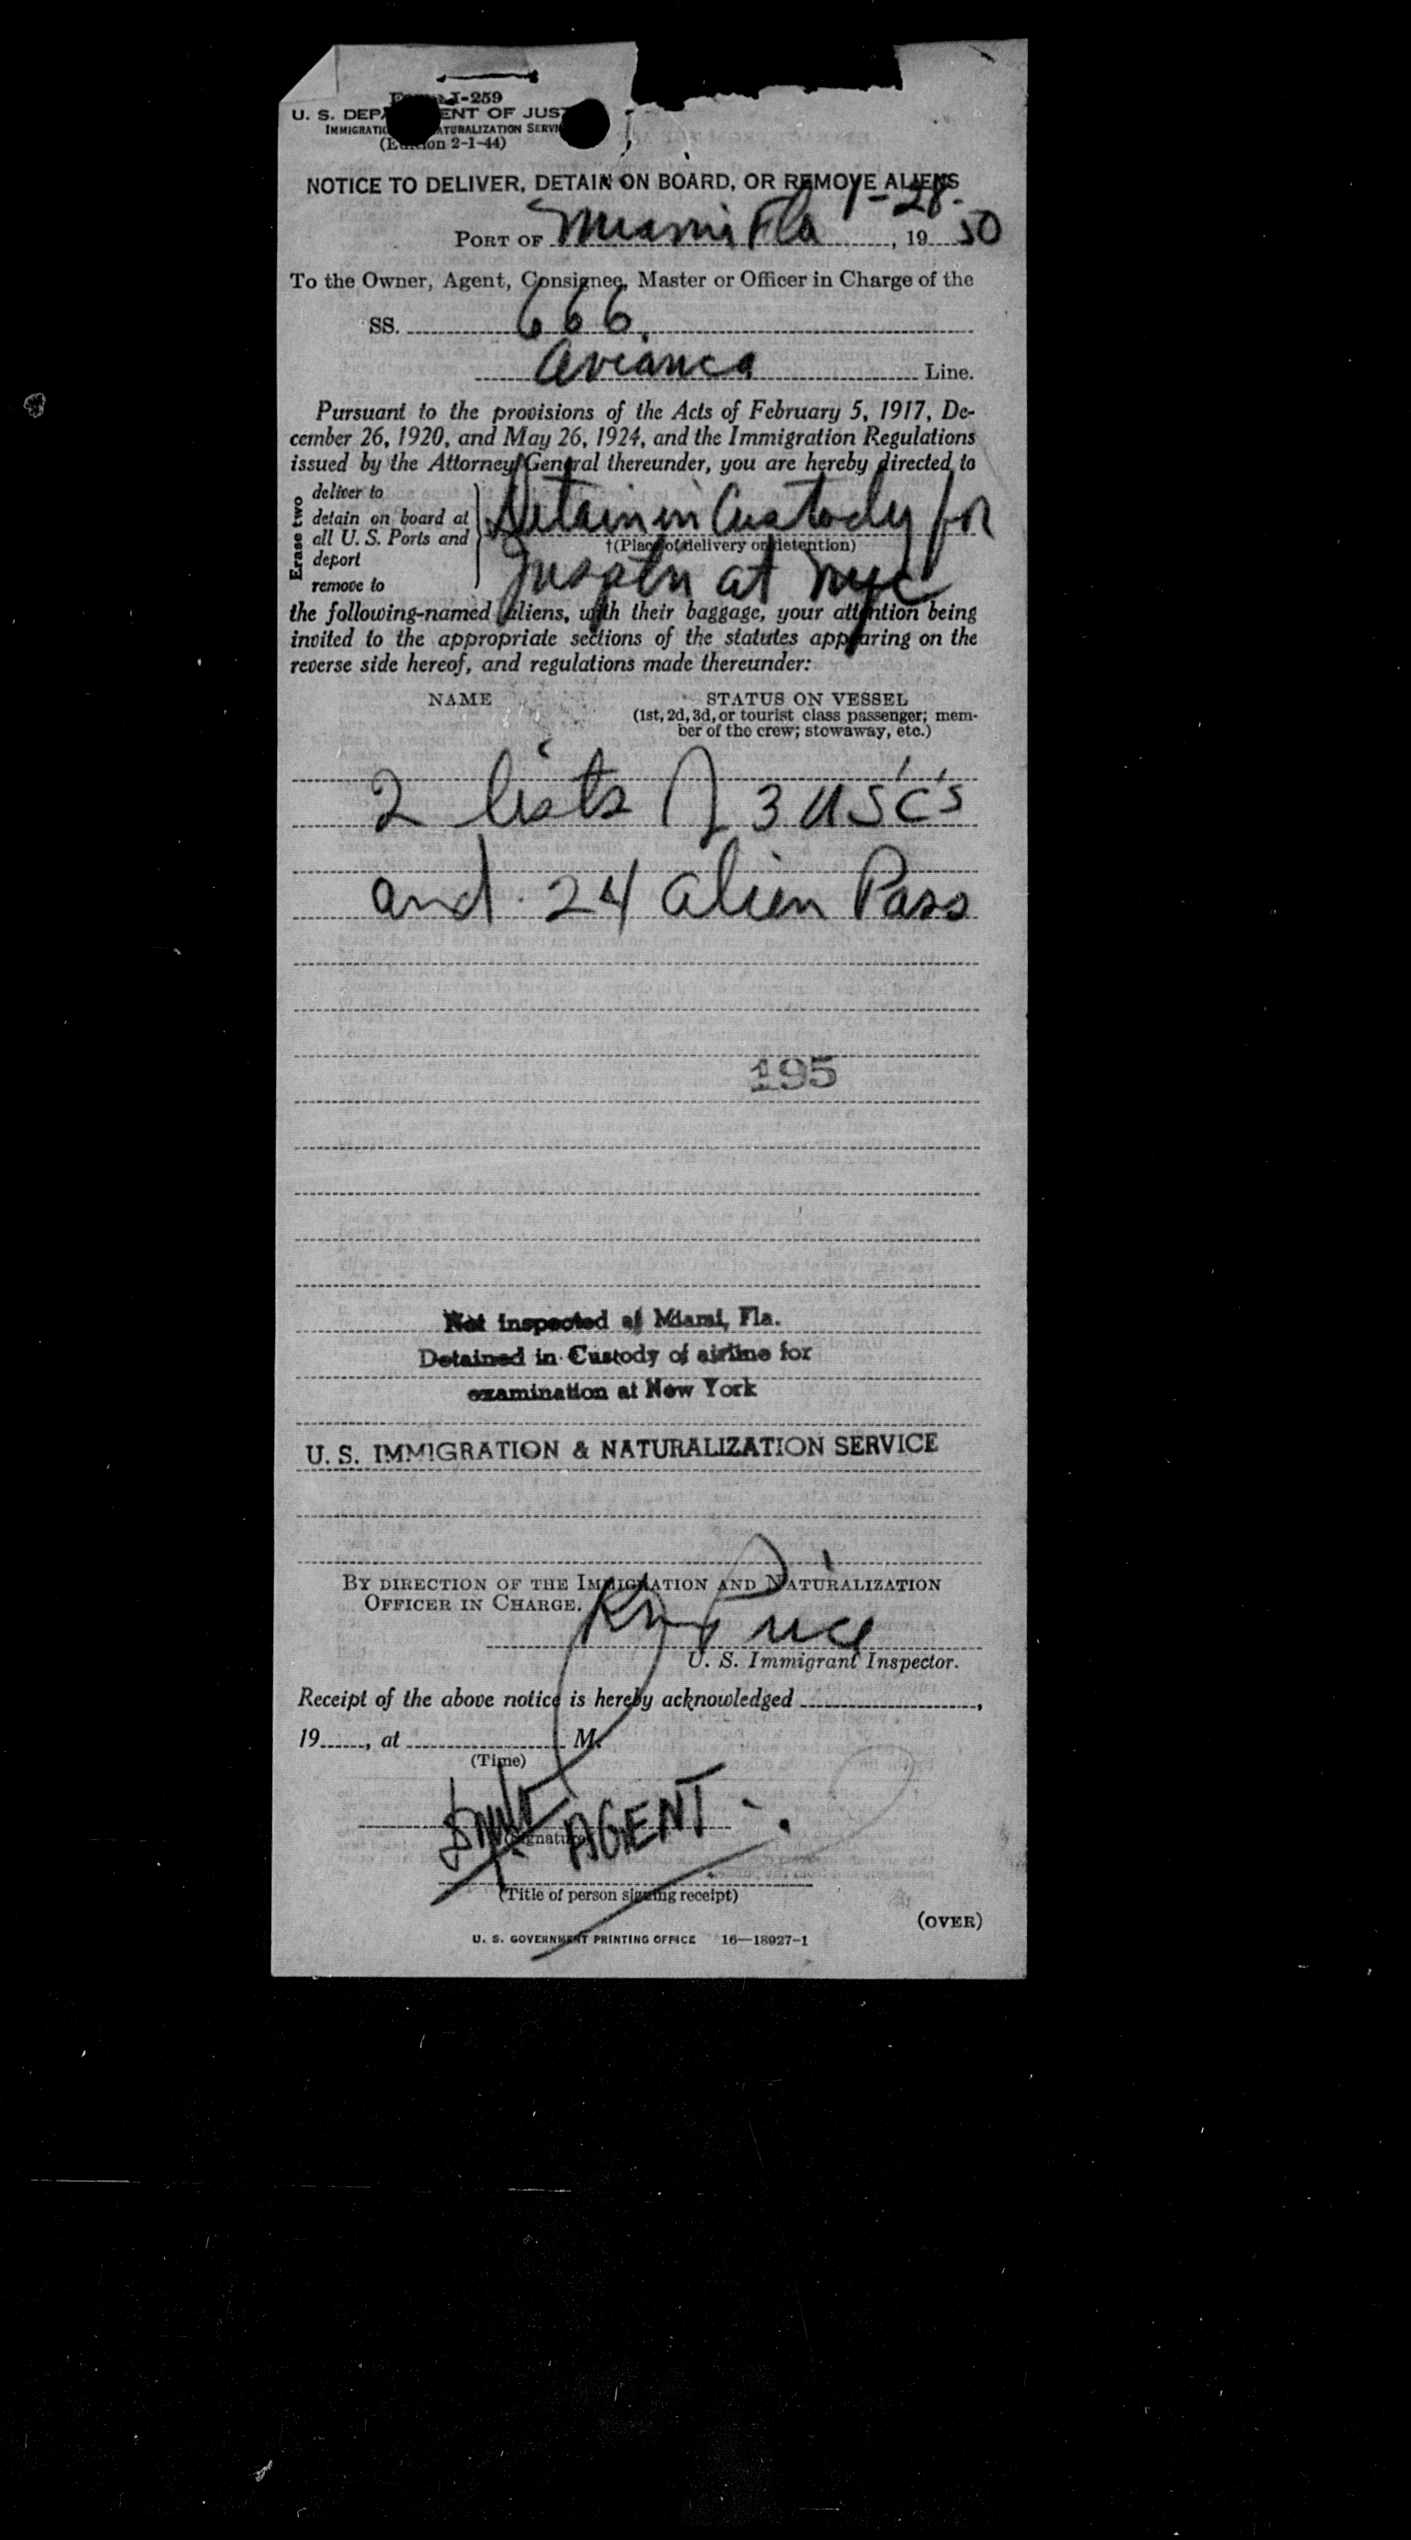 Form I-259
U. S. DEPARTMENT OF JUSTICE
IMMIGRATION NATURALIZATION SERVICE
(Edition 2-1-44)
NOTICE TO DELIVER, DETAIN ON BOARD, OR REMOVE ALIENS
1-28-
PORT OF Miami Fla, 19 50
To the Owner, Agent, Consignee, Master or Officer in Charge of the
SS. 666
Avianca Line.
Pursuant to the provisions of the Acts of February 5, 1917, De-
cember 26, 1920, and May 26, 1924, and the Immigration Regulations
issued by the Attorney General thereunder, you are hereby directed to
Erase two
deliver to
detain on board at
all U. S. Ports and
deport
remove to
Detain in Custody for
†(Place of delivery or detention)
Insptn at NYC
the following-named aliens, with their baggage, your attention being
invited to the appropriate sections of the statutes appearing on the
reverse side hereof, and regulations made thereunder:
NAME
STATUS ON VESSEL
(1st, 2d, 3d, or tourist class passenger; mem-
ber of the crew; stowaway, etc.)
2 lists of 3 USC's
and 24 alien Pass
195
Not inspected at Miami, Fla.
Detained in Custody of airline for
examination at New York
U. S. IMMIGRATION & NATURALIZATION SERVICE
BY DIRECTION OF THE IMMIGRATION AND NATURALIZATION
OFFICER IN CHARGE.
Price
U. S. Immigrant Inspector.
Receipt of the above notice is hereby acknowledged ,
19 , at M.
(Time)
AGENT
(Signature)
(Title of person signing receipt)
(OVER)
U. S. GOVERNMENT PRINTING OFFICE 16—18927-1